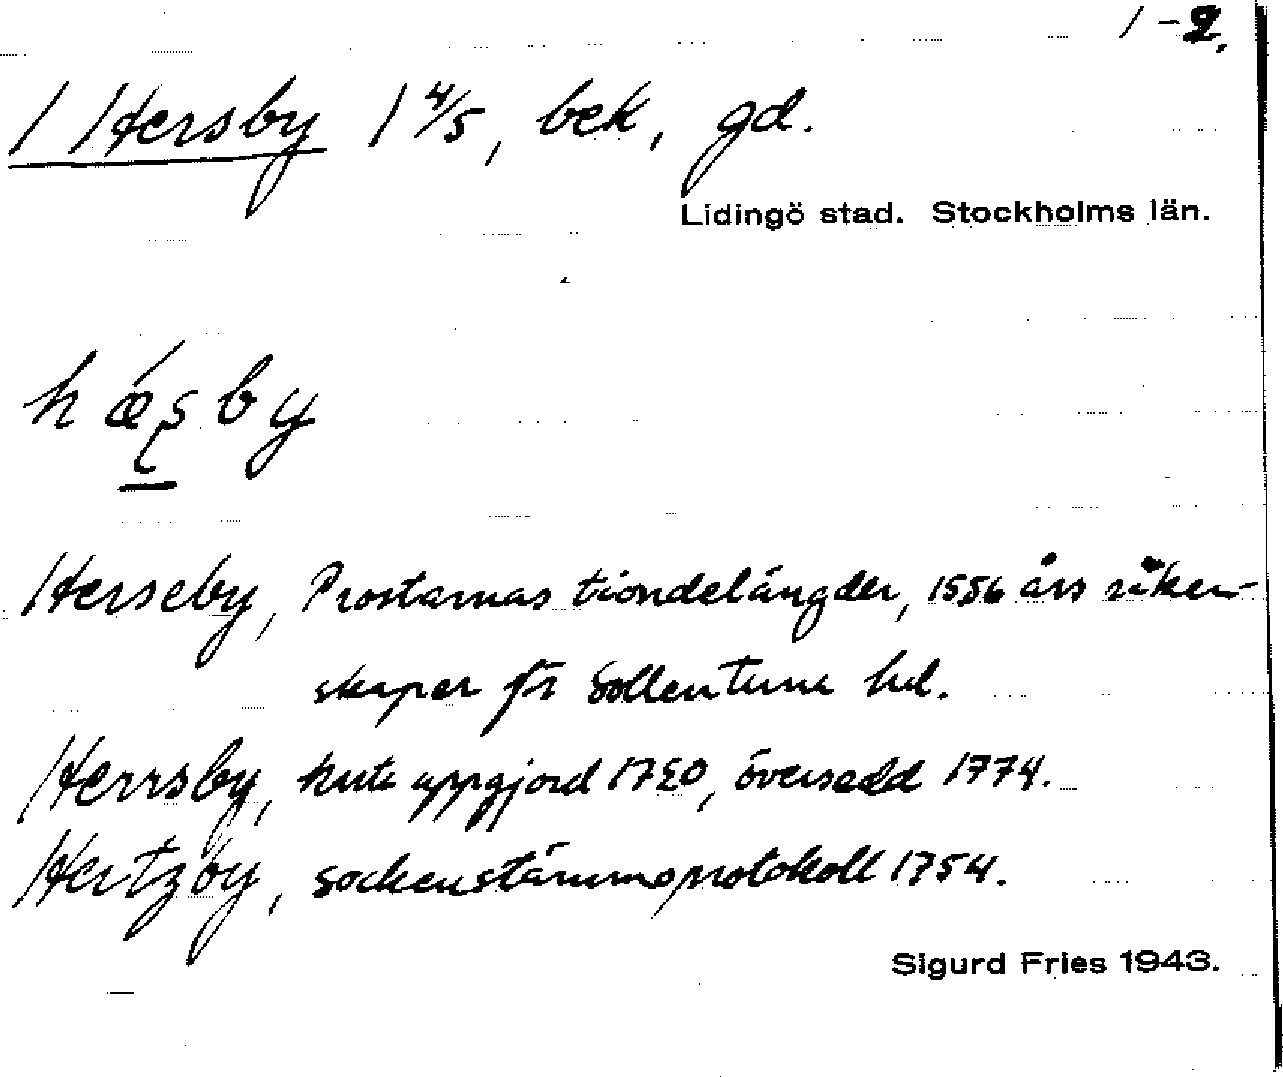 1-2.
1 Hersby 1 4/5, bek, gd.
Lidingö stad. Stockholms län.
hǽşby
Herseby, Prostarnas tiondelängder, 1556 års räken-
skaper för Sollentuna hd.
Herrsby, karta uppgjord 1720, översedd 1774.
Hertzby, sockenstämmoprotokoll 1754.
Sigurd Fries 1943.